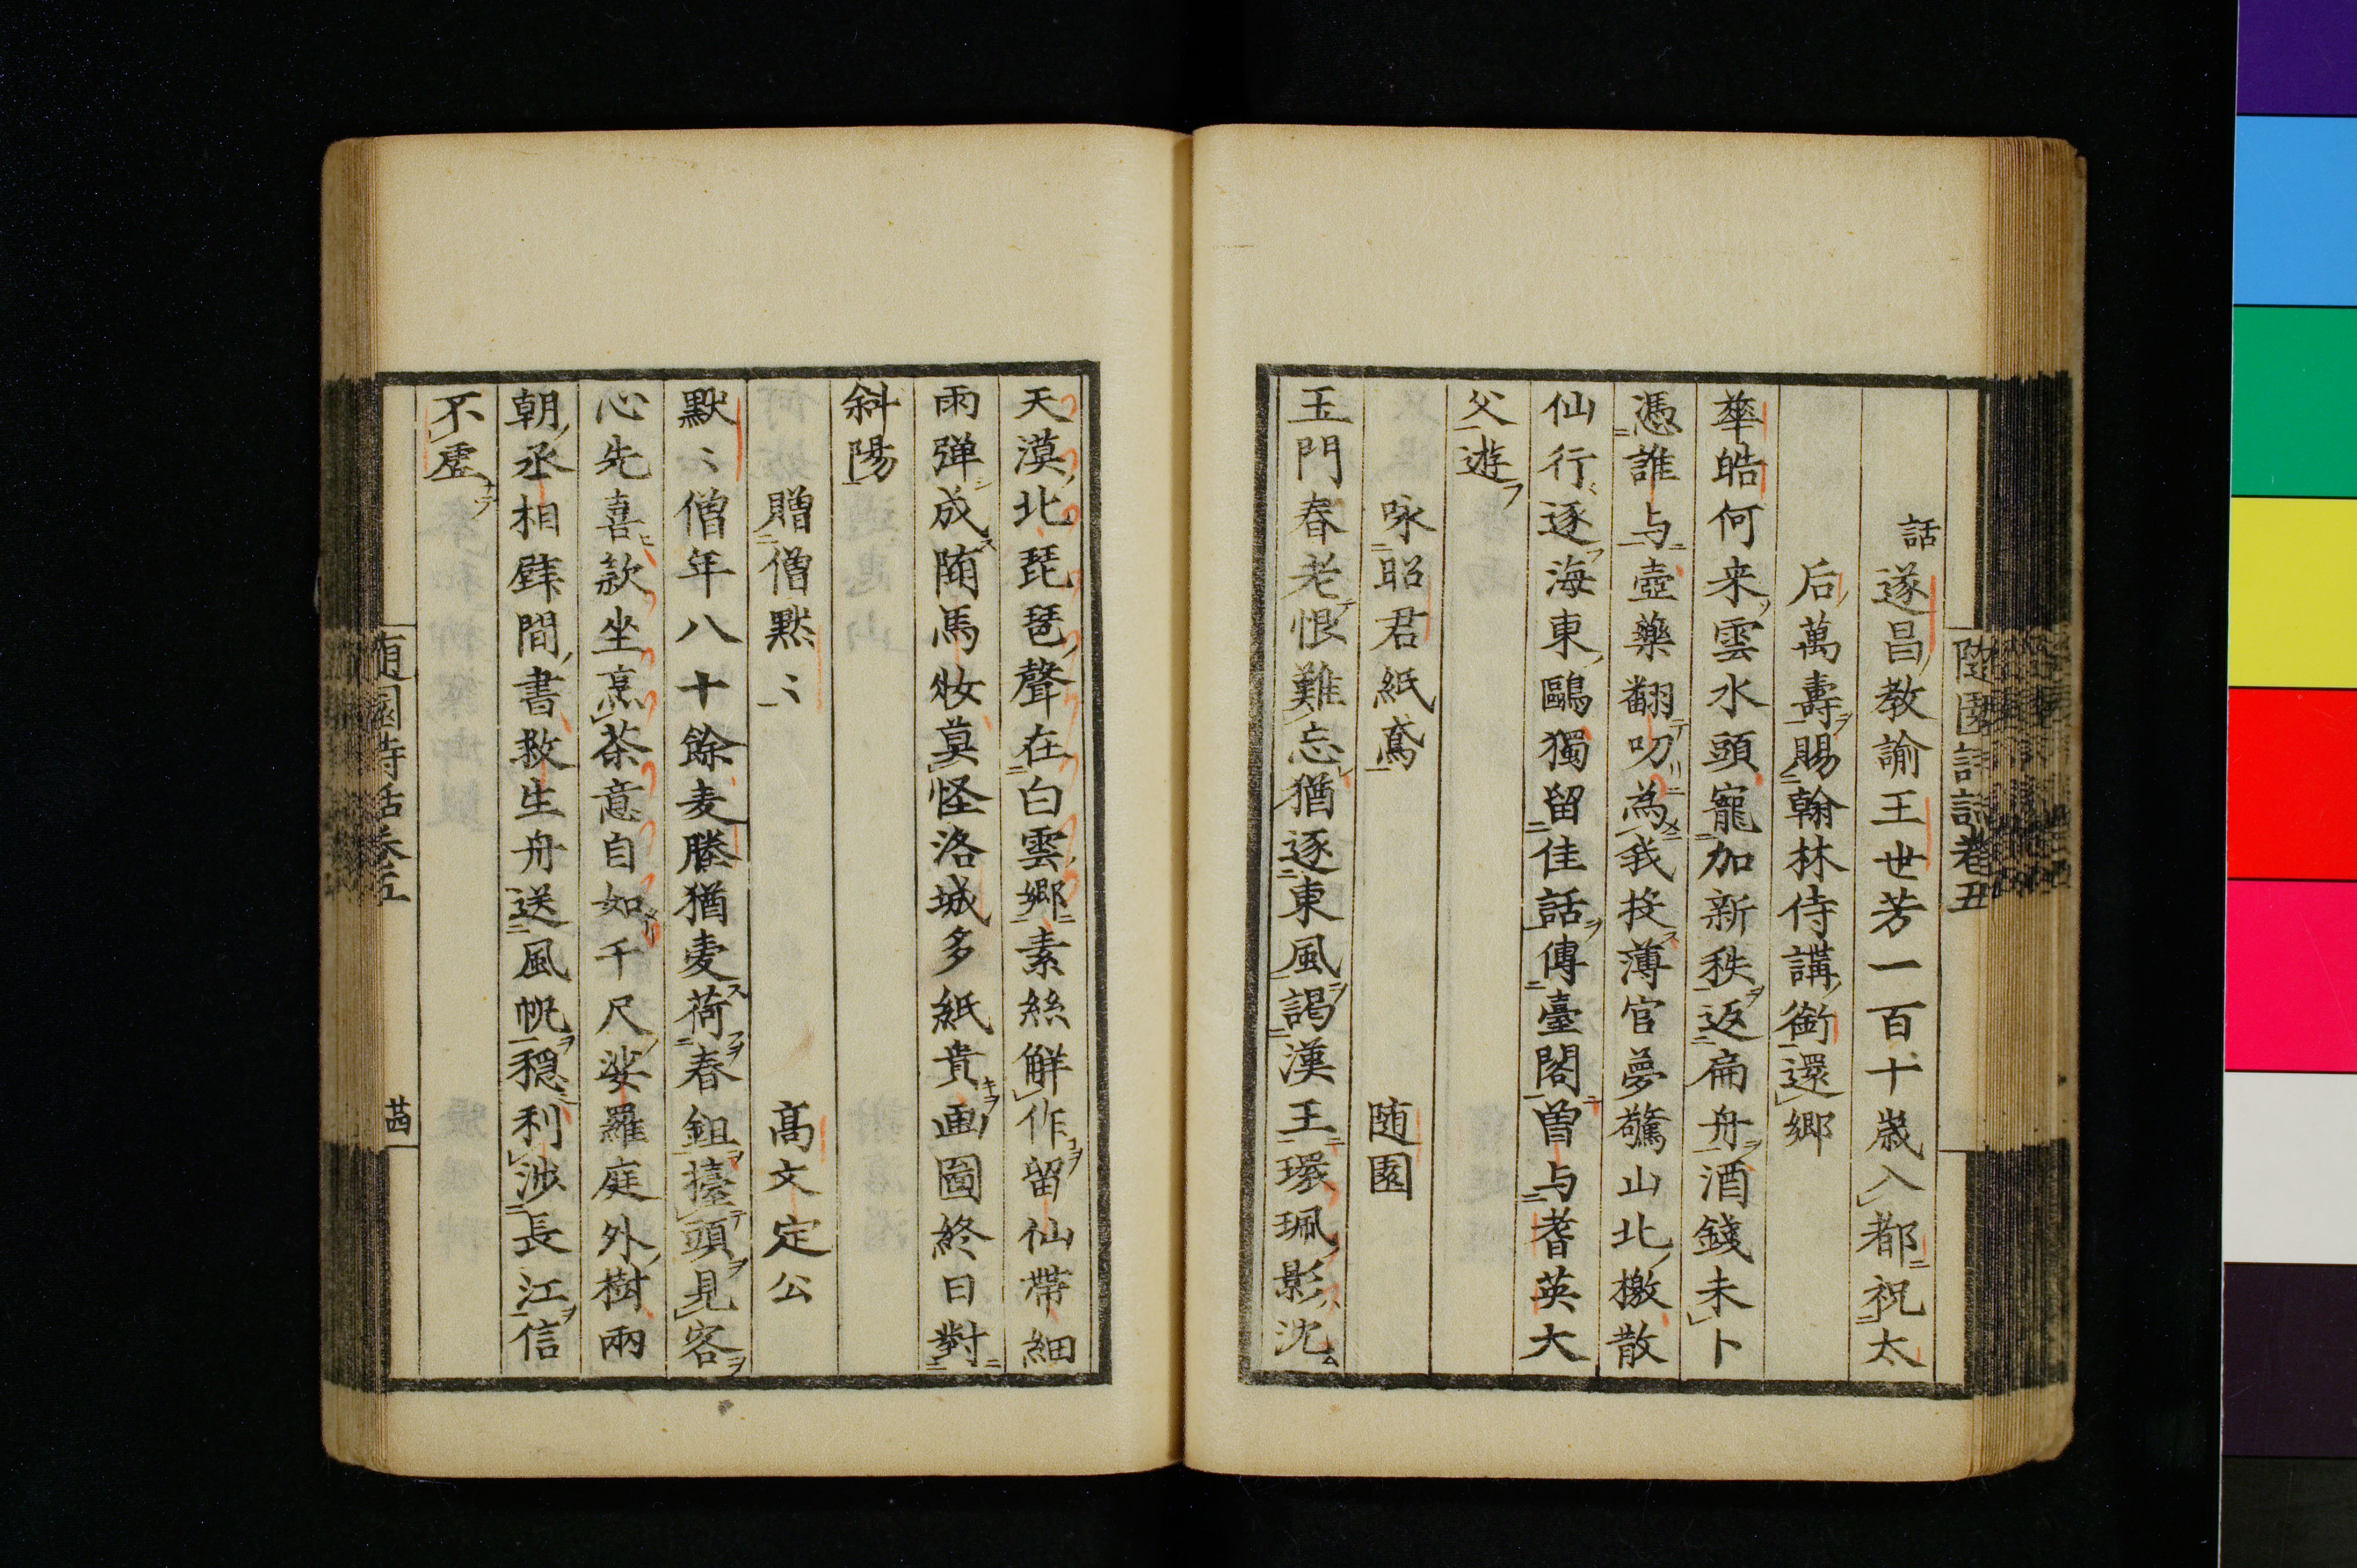 隨園詩話卷五
話
遂昌教諭王世芳一百十歲入都祝太
后萬壽賜翰林侍講銜還鄉
華皓何来雲水頭寵加新秩返扁舟酒錢未卜
憑誰与壺藥翻叨為我投薄官夢驚山北檄散
仙行逐海東鷗獨留佳話傳臺閣曽与耆英大
父遊
咏昭君紙鳶 随園
玉門春老恨難忘猶逐東風謁漢王環珮影沈
天漠北琵琶聲在白雲鄉素絲觧作留仙帶細
雨弾成随馬妝莫怪洛城多紙貴画圖終日對
斜陽
贈僧黙〻 髙文定公
默〻僧年八十餘麦塍猶麦荷春鉏擡頭見客
心先喜款坐烹茶意自如千尺娑羅庭外樹兩
朝丞相壁間書救生舟送風帆穏利涉長江信
不虚
随園詩話巻五